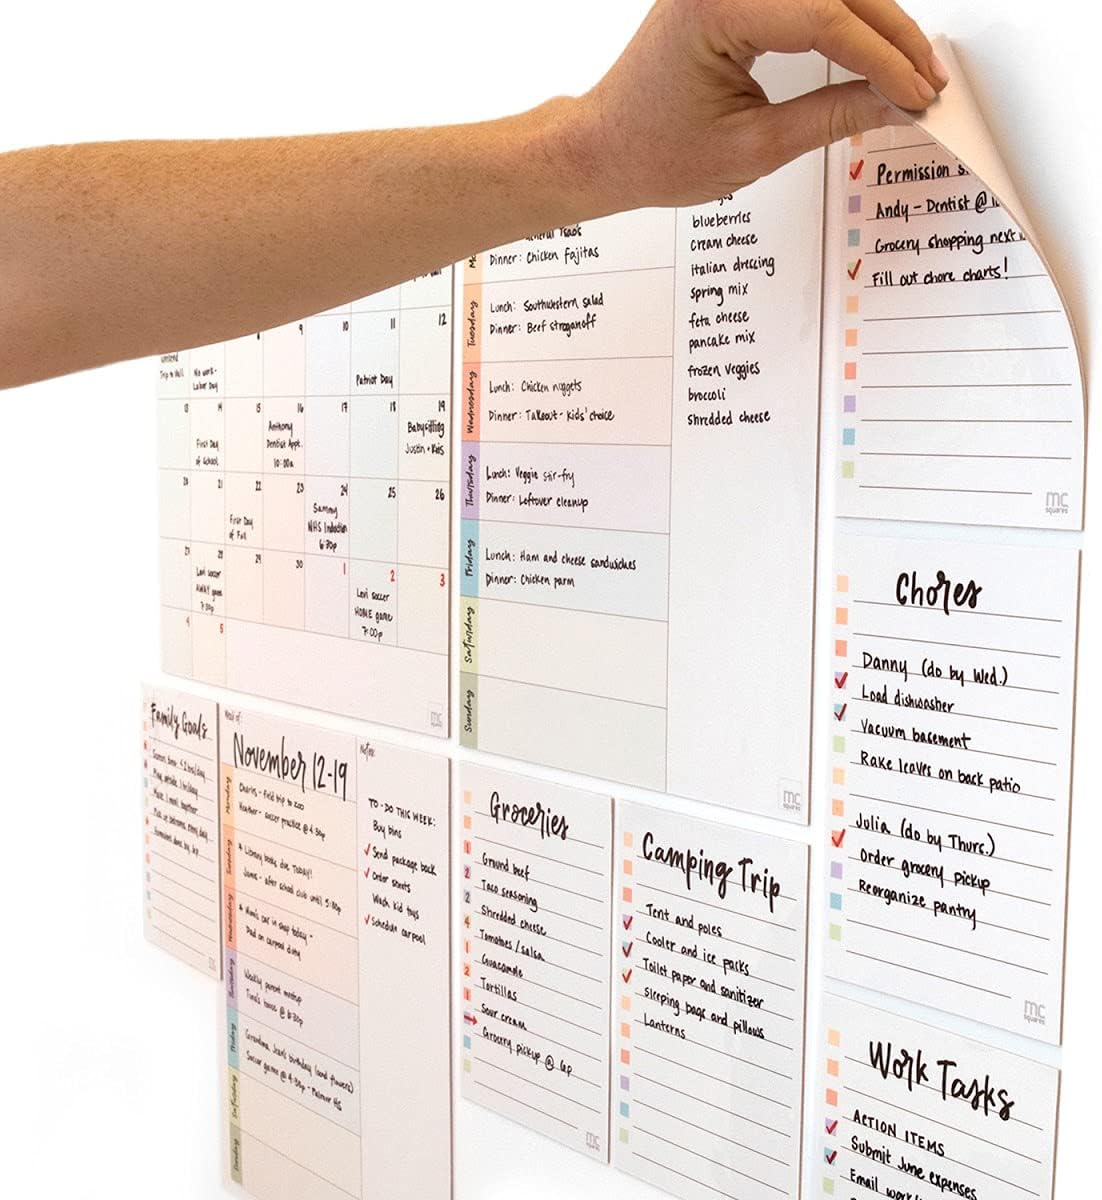 Permission
Andy - Dentist @
Grocery shopping next
Fill out chore charts!
mc
squares
Dinner: Chicken fajitas
Tuesday
Lunch: Southwestern salad
Dinner: Beef stroganoff
Wednesday
Lunch: Chicken nuggets
Dinner: Takeout - kids' choice
Thursday
Lunch: Veggie stir-fry
Dinner: Leftover cleanup
Friday
Lunch: Ham and cheese sandwiches
Dinner: Chicken parm
Saturday
Sunday
blueberries
cream cheese
Italian dressing
spring mix
feta cheese
pancake mix
frozen veggies
broccoli
shredded cheese
mc
squares
9 10 11 12
No work -
Labor Day
Patriot Day
13 14 15 16 17 18 19
First Day
of school
Anthony
Dentist Appt.
10:00a
Babysitting
Justin + Kids
20 21 22 23 24 25 26
First Day
of Fall
Sammy
NHS Induction
6:30p
27 28 29 30 1 2 3
Levi soccer
AWAY game
7:00p
Levi soccer
HOME game
7:00p
4 5
mc
squares
Family Goals
Week of:
November 12-19
Monday
Charlie - field trip to zoo
Heather - soccer practice @ 4:30p
Tuesday
* Library books due Today!
Jamie - after school club until 5:00p
Wednesday
* Mom's car in shop today -
Dad on carpool duty
Thursday
Weekly parent meetup
@ 6:30p
Friday
Grandma Jean's birthday (send flowers)
Soccer game @ 4:30p - Palmer HS
Saturday
Sunday
Notes:
TO-DO THIS WEEK:
Buy bins
Send package back
Order shirts
Wash kid toys
Schedule carpool
Groceries
1 Ground beef
2 Taco seasoning
2 Shredded cheese
4 Tomatoes/salsa
1 Guacamole
2 Tortillas
1 Sour cream
Grocery pickup @ 6p
mc
squares
Camping Trip
Tent and poles
Cooler and ice packs
Toilet paper and sanitizer
sleeping bags and pillows
Lanterns
Chores
Danny (do by Wed.)
Load dishwasher
Vacuum basement
Rake leaves on back patio
Julia (do by Thurs.)
Order grocery pickup
Reorganize pantry
mc
squares
Work Tasks
ACTION ITEMS
Submit June expenses
Email